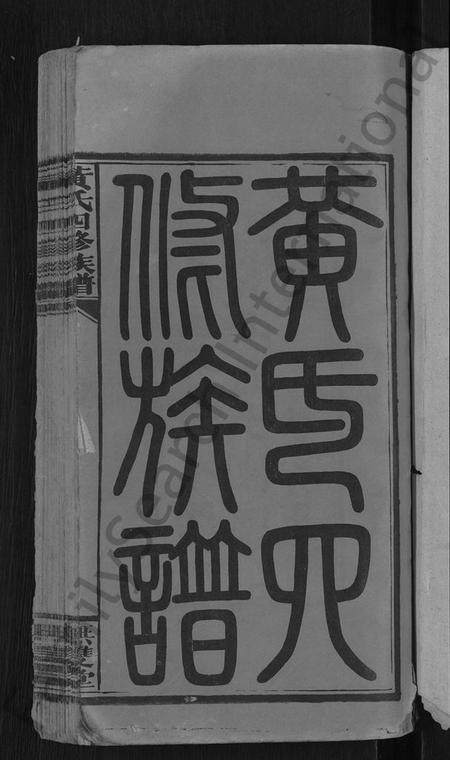 黃氏四
修族譜
黃氏四修族譜
無雙堂
FamilySearch International